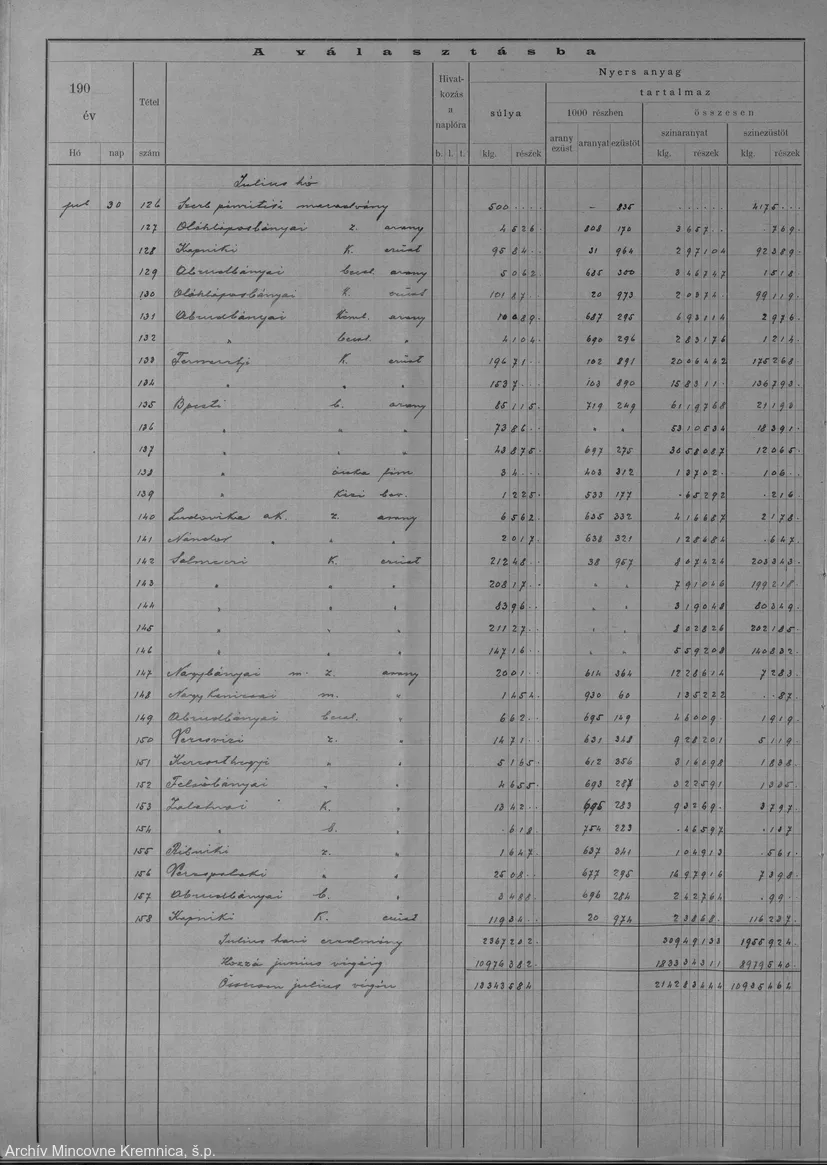 A választásba
190
év
Hó nap
Tétel
szám
Hivat-
kozás
a
naplóra
b. l. t.
Nyers anyag
súlya
klg. részek
tartalmaz
1000 részben
arany
ezüst aranyat ezüstöt
összesen
szinaranyat szinezüstöt
klg. részek klg. részek
Julius hó
jul 30 126 maradvány 500 — 835 4175
127 Oláhláposbányai z. arany 4526 808 170 3657 769
128 Kapniki K. ezüst 9584 31 964 297104 92389
129 Abrudbányai arany 5062 685 300 346747 1518
130 Oláhláposbányai K. ezüst 10187 20 973 20374 99119
131 Abrudbányai arany 10089 687 295 693114 2976
132 " " 4104 690 296 283176 1214
133 K. ezüst 19471 102 891 2006442 175268
134 " " " 1537 103 890 158311 136793
135 b. arany 85115 719 249 6119768 21193
136 " " " 7386 " " 5310534 18391
137 " " " 43875 697 275 3058087 12065
138 " 34 403 312 13702 106
139 " 1225 533 177 65292 216
140 Ludovika ak. z. arany 6562 635 332 416687 2178
141 Nándor " " " 2017 638 321 128684 647
142 Selmeczi K. ezüst 21248 38 957 807424 203343
143 " " " 20817 " " 791046 199218
144 " " " 8396 " " 319048 80349
145 " " " 21127 " " 802826 202185
146 " " " 14716 " " 559208 140832
147 Nagybányai m. z. arany 2001 614 364 1228614 7283
148 m. " 1454 930 60 135222 87
149 Abrudbányai " 662 695 149 46009 1919
150 z. " 1471 631 348 928201 5119
151 " " 5165 612 356 316098 1838
152 Felsőbányai " " 4655 693 287 322591 1335
153 Zalatnai K. " 1342 695 283 93269 3797
154 " b. " 618 754 223 46597 137
155 z. " 1647 637 341 104913 561
156 Verespataki " " 2508 677 295 1697916 7398
157 Abrudbányai b. " 3488 696 284 242764 99
158 Kapniki K. ezüst 11934 20 974 23868 116237
Julius havi eredmény 2367202 30949133 1955924
Hozzá junius végéig 10976382 183334311 8979540
Összesen julius végén 13343584 214283444 10935464
Archív Mincovne Kremnica, š.p.